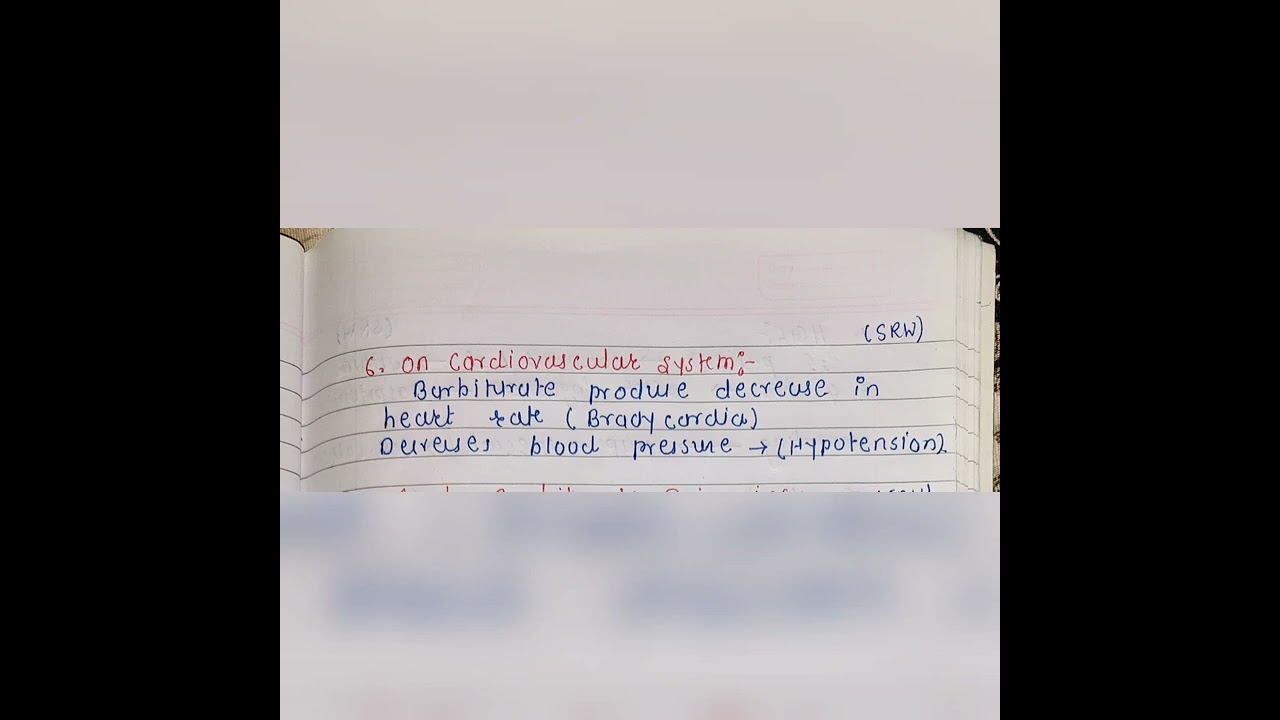 (SRW)
6. on Cardiovascular system:-
Barbiturate produce decrease in
heart rate (Bradycardia)
Decreases blood pressure → (Hypotension)